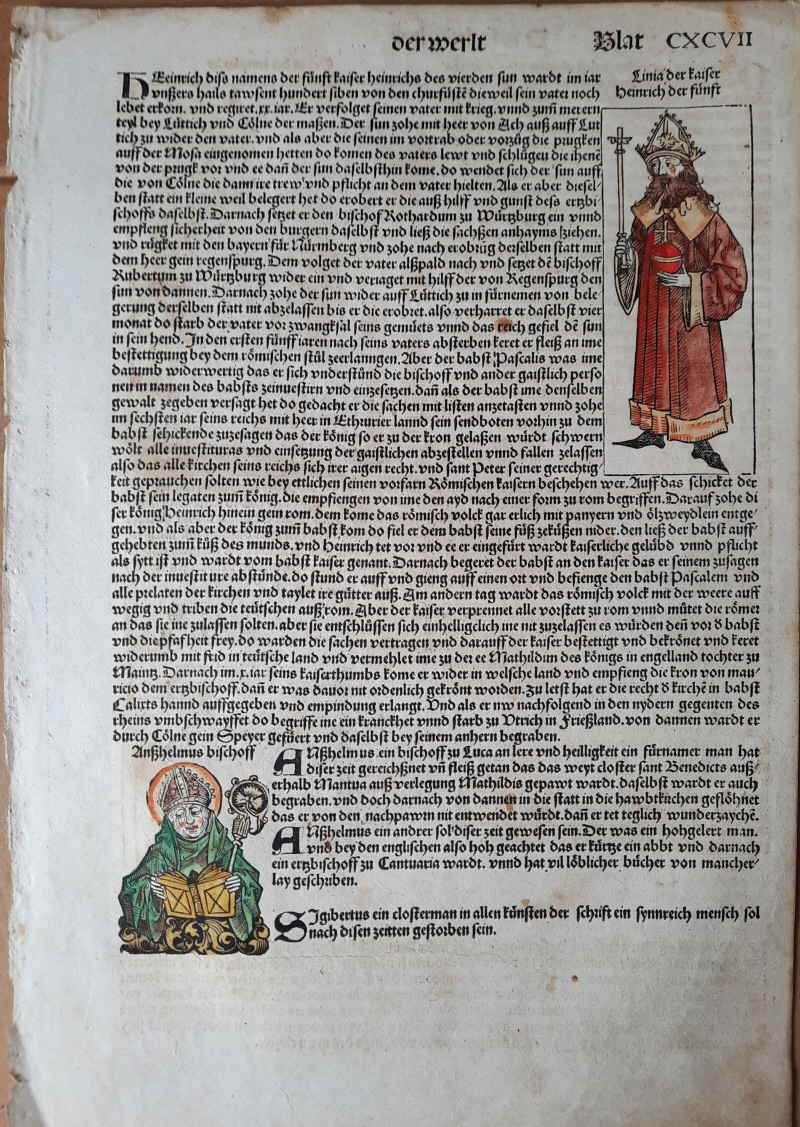 der werlt Blat CXCVII
Linia der kaiser
Heinrich der fünft
HEinrich diss namens der fünft kaiser heinrichs des vierden sun wardt im iar
vnßers hails tawsent hundert siben von den churfürstē dieweil sein vater noch
lebet erkorn. vnd regiret .xx. iar. Er verfolget seinen vater mit krieg. vnnd zum̄ merern
teyl bey Lüttich vnd Cölne der maßen. Der sun zohe mit heer von Ach auß auff Lut
tich zu wider den vater. vnd als aber die seinen im vortrab oder vorzüg die prugken
auff der Mosa eingenomen hetten do komen des vaters lewt vnd schlugen die ihenē
von der prugk vor vnd ee dañ der sun daselbsthin kome. do wendet sich der sun auff
die von Cölne die dann ire trew vnd pflicht an dem vater hielten. Als er aber diesel-
ben statt ein kleine weil belegert het do erobert er die auß hilff vnd gunst dess ertzbi
schoffs daselbst. Darnach setzet er den bischof Rothardum zu Würtzburg ein vnnd
empfieng sicherheit von den burgern daselbst vnd ließ die sachßen anhayms ziehen.
vnd rügket mit den bayern für Nürmberg vnd zohe nach erobrüg derselben statt mit
dem heer gein regenspurg. Dem volget der vater alßpald nach vnd setzet dē bischoff
Rubertum zu Würtzburg wider ein vnd veriaget mit hilff der von Regenspurg den
sun von dannen. Darnach zohe der sun wider auff Lüttich zu in fürnemen von bele
gerung derselben statt nit abzelassen bis er die erobret. also verharret er daselbst vier
monat do starb der vater vor zwangksal seins gemüets vnnd das reich gefiel dē sun
in sein hend. In den ersten fünff iaren nach seins vaters absterben keret er fleiß an ime
bestettigung bey dem römischen stül zeerlanngen. Aber der babst Pascalis was ime
darumb widerwertig das er sich vnderstünd die bischoff vnd ander gaistlich perso
nen in namen des babsts zeinuestirn vnd einzesetzen. dañ als der babst ime denselben
gewalt zegeben versagt het do gedacht er die sachen mit listen anzetasten vnnd zohe
im sechsten iar seins reichs mit heer in Ethrurier lannd sein sendboten vorhin zu dem
babst schickende zuzesagen das der könig so er zu der kron gelaßen würdt schwern
wölt alle inuestituras vnd einsetzung der gaistlichen abzestellen vnnd fallen zelassen
also das alle kirchen seins reichs sich irer aigen recht. vnd sant Peter seiner gerechtig
keit geprauchen solten wie bey ettlichen seinen vorfarn Römischen kaisern beschehen wer. Auff das schicket der
babst sein legaten zum̄ könig. die empfiengen von ime den ayd nach einer form zu rom begriffen. Darauf zohe di
ser könig Heinrich hinein gein rom. dem kome das römisch volck gar erlich mit panyern vnd ölzweydlein entge
gen. vnd als aber der könig zum̄ babst kom do fiel er dem babst seine füß zeküßen nider. den ließ der babst auff-
gehebten zum̄ küß des munds. vnd Heinrich tet vor vnd ee er eingefürt wardt kaiserliche gelübd vnnd pflicht
als sytt ist vnd wardt vom babst kaiser genant. Darnach begeret der babst an den kaiser das er seinem zusagen
nach der inuestiture abstünde. do stund er auff vnd gieng auff einen ort vnd befienge den babst Pascalem vnd
alle prelaten der kirchen vnd taylet ire gütter auß. Am andern tag wardt das römisch volck mit der weere auff
wegig vnd triben die teütschen auß rom. Aber der kaiser verprennet alle vorstett zu rom vnnd mütet die römer
an das sy ine zulassen solten. aber sie entschlüssen sich einhelligclich ine nit zuzelassen es würden deñ vor d babst
vnd die pfafheit frey. do warden die sachen vertragen vnd darauff der kaiser bestettigt vnd bekrönet vnd keret
widerumb mit frid in teütsche land vnd vermehlet ime zu der ee Mathildim des königs in engelland tochter zu
Maintz. Darnach im .x. iar seins kaiserthumbs kome er wider in welsche land vnd empfieng die kron von mau-
ricio dem ertzbischoff. dañ er was dauor nit ordenlich gekrönt worden. Zu letst hat er die recht d kirchē in babst
Calixts hannd auffgegeben vnd empindung erlangt. Vnd als er nw nachfolgend in den nydern gegenten des
rheins vmbschwayffet do begriffe ine ein kranckheit vnnd starb zu Vtrich in Frießland. von dannen wardt er
durch Cölne gein Speyer gefüert vnd daselbst bey seinem anhern begraben.
Anßhelmus bischoff
ANßhelmus ein bischoff zu Luca an lere vnd heilligkeit ein fürnamer man hat
diser zeit gereichßnet vñ fleiß getan das das weyt closter sant Benedicts auß-
erhalb Mantua auß verlegung Mathildis gepawt wardt. daselbst wardt er auch
begraben. vnd doch darnach von dannen in die statt in die hawbtkirchen geflöhnet
das er von den nachpawrn nit entwendet würdt. dañ er tet teglich wunderzaychē.
ANßhelmus ein andrer sol diser zeit gewesen sein. Der was ein hohgelert man.
vnd bey den englischen also hoh geachtet das er kürtze ein abbt vnd darnach
ein ertzbischoff zu Cantuaria wardt. vnnd hat vil löblicher bücher von mancher-
lay geschriben.
SIgibertus ein closterman in allen künsten der schrift ein synnreich mensch sol
nach disen zeitten gestorben sein.